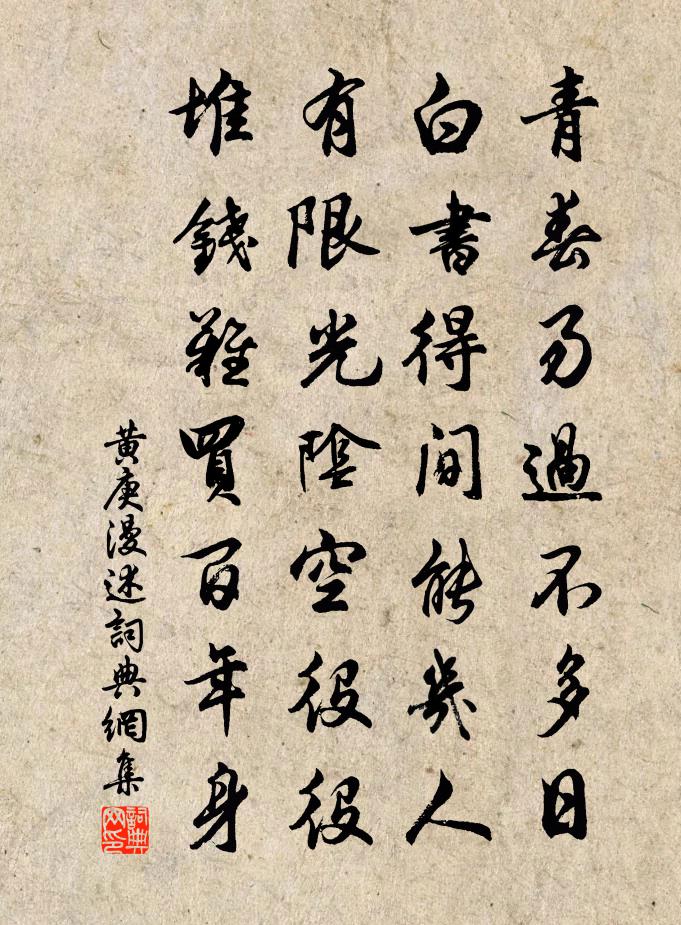 青春易過不多日
白書得間能幾人
有限光陰空役役
堆錢難買百年身
黃庚漫述詞典網集
詞典網印